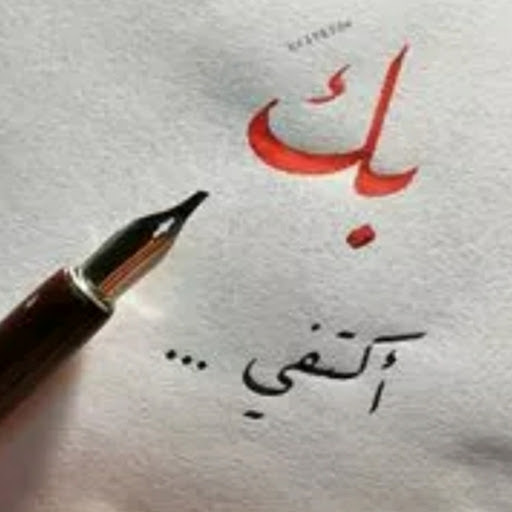 بك
أكتفي ...